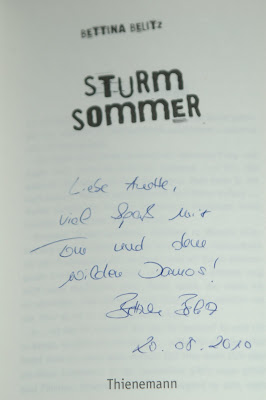 BETTINA BELITZ
STURM
SOMMER
Liebe
viel Spaß mit
Tom und dem
wilden Damos!
Bettina Belitz
20.08.2010
Thienemann